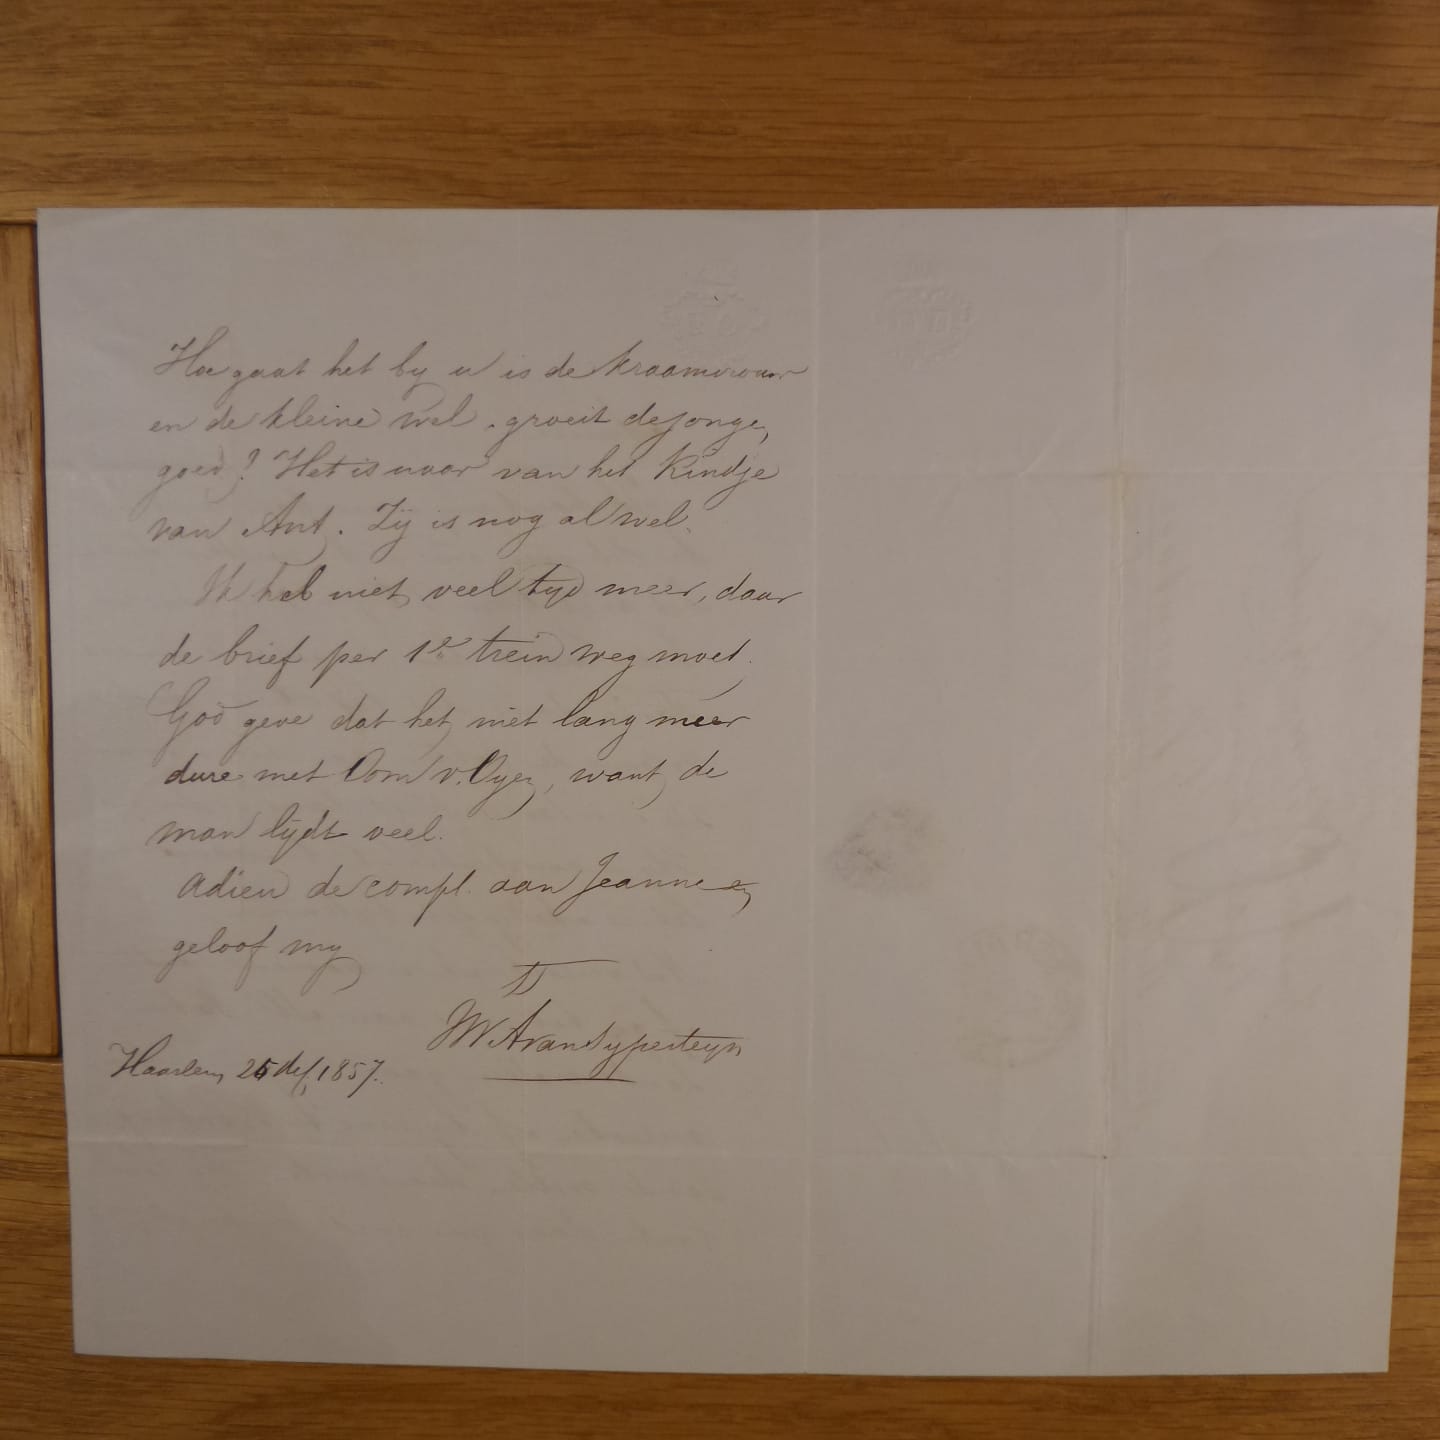 Hoe gaat het by u is de kraamvrouw
en de kleine wel. groeit de jonge,
goed? Het is naar van het kindje
van Ant. Zij is nog al wel.
Ik heb niet veel tyd meer, daar
de brief per 1e trein weg moet.
God geve dat het niet lang meer
dure met Oom v. Oyen, want de
man lijdt veel.
Adieu de compl. aan Jeanne en
geloof my
tt
JW A van Sypesteyn
Haarlem, 25 dec, 1857.